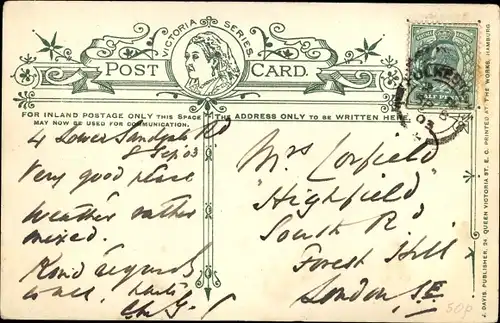 VICTORIA SERIES
POST CARD.
FOR INLAND POSTAGE ONLY THIS SPACE
MAY NOW BE USED FOR COMMUNICATION.
THE ADDRESS ONLY TO BE WRITTEN HERE.
4 Lower Sandgate Rd
8 Sep 03
Very good place
Weather rather
mixed.
Kind regards
to all.
Mrs Corfield
"Highfield"
South Rd
Forest Hill
London, SE
J. DAVIS, PUBLISHER, 24, QUEEN VICTORIA ST. E. C. PRINTED AT THE WORKS, HAMBURG.
50p